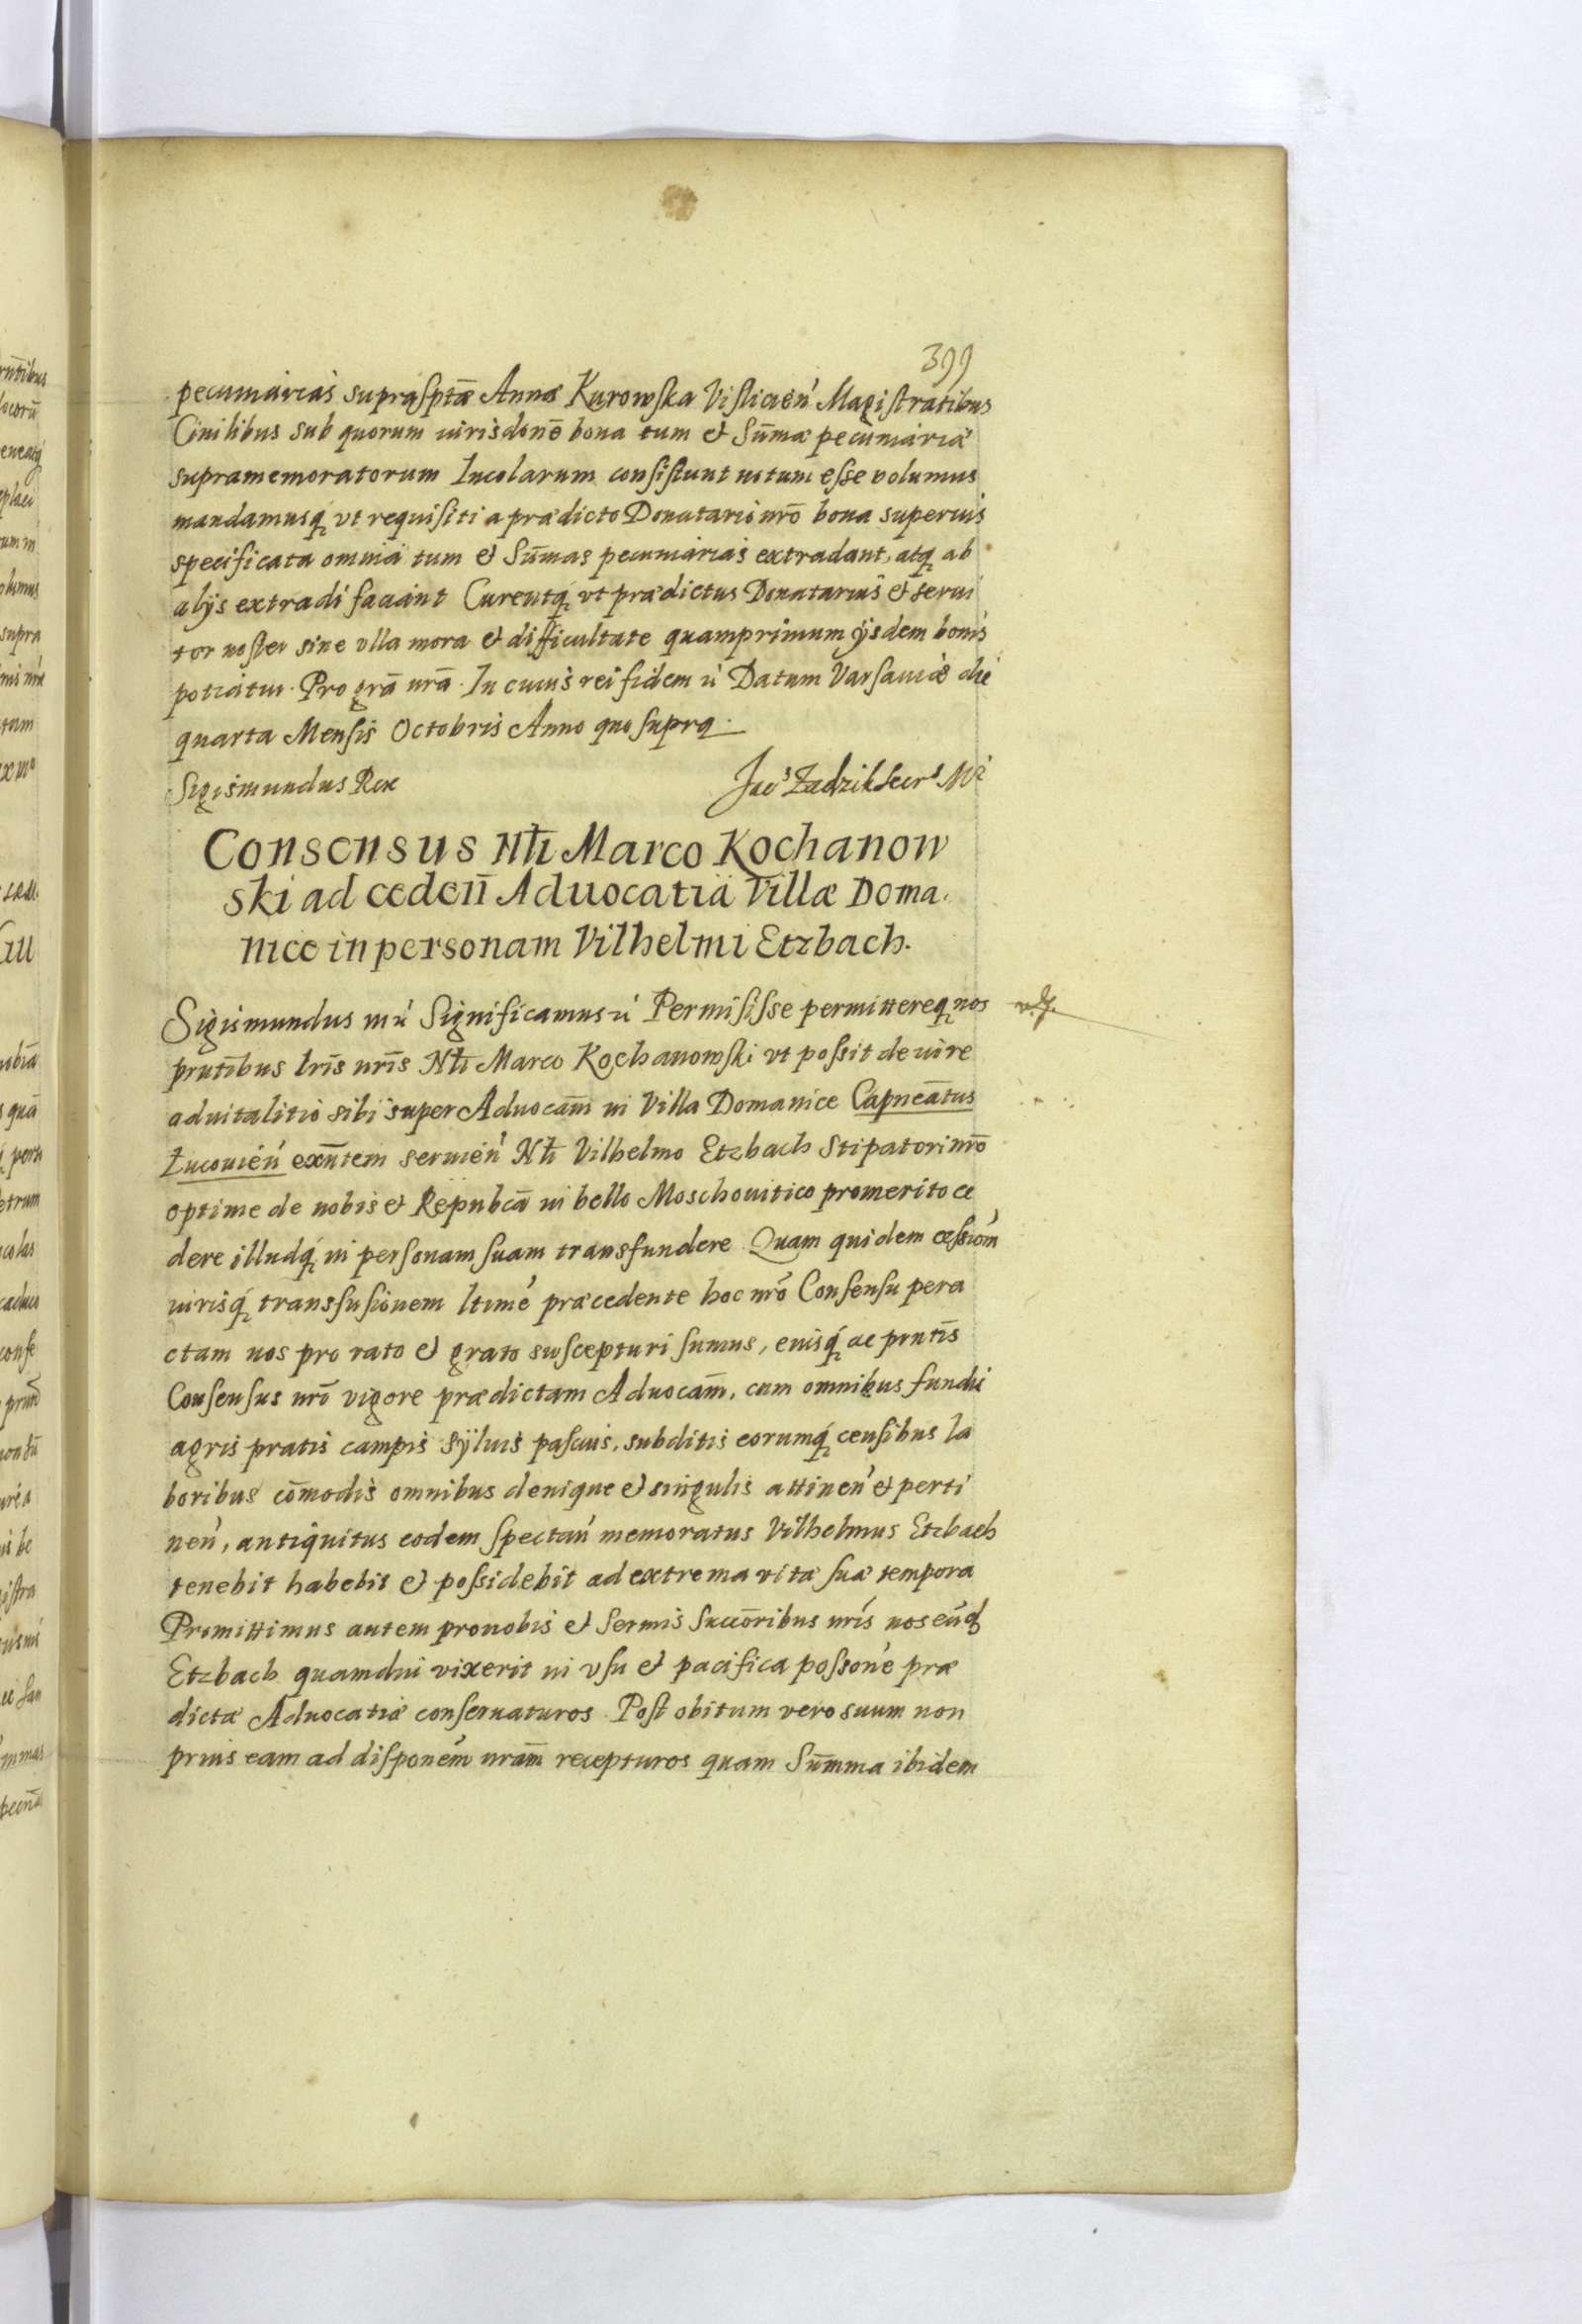 399
pecuniarias supraſptæ Annæ Kurowſka Viſlicień Magiſtratibus
Ciuilibus sub quorum iurisdonē bona tum et Sūmæ pecuniariæ
supramemoratorum Incolarum conſiſtunt notum eſse volumus
mandamusq́ vt requiſiti a prædicto Donatario nrō bona superius
specificata omnia tum et Sūmas pecuniarias extradant, atq̨ ab
alÿs extradi faciant Curentq́ vt prædictus Donatarius et serui
tor noſter sine vlla mora et difficultate quamprimum ÿsdem bonis
potiatur. Pro grā nrā. In cuius rei fidem ń Datum Varſauiæ die
quarta Menſis Octobris Anno quo ſupra.
Sigismundus Rex
Jac⁵ Zadzik Secr⁵ Mⁱ
Consensus Nłi Marco Kochanow
ski ad cedeñ Aduocatia Villæ Doma.
nice in personam Vilhelmi Etzbach.
Sigismundus mń Significamus ń Permiſiſse permittereq̨ nos
prntībus lrīs nrīs Nłi Marco Kochanowſki vt poſsit de iure
aduitalitio sibi super Aduocam̄ in Villa Domanice Capneātus
Łucouień exn̄tem seruień Nłi Vilhelmo Etzbach Stipatori nrō
optime de nobis et Repubcā in bello Moschouitico promerito ce
dere illudq́ in perſonam ſuam transfundere Quam quidem ceſsiom̄
iurisq́ transfuſionem ltimé præcedente hoc nrō Conſenſu pera
ctam nos pro rato et grato suſcepturi ſumus, eiusq́ ac prntīs
Conſenſus nrī vigore prædictam Aduocam̄, cum omnibus fundi
agris pratis campis sÿluis paſcuis, subditis eorumq́ cenſibus la
boribus cōmodis omnibus denique et singulis attineń et perti
neń, antiquitus eodem ſpectań memoratus Vilhelmus Etzbach
tenebit habebit et poſsidebit ad extrema vitæ ſuæ tempora
Promittimus autem pro nobis et Sermis Succōribus nrīs nos eūd
Etzbach quamdiu vixerit in vſu et pacifica poſsonē præ
dictæ Aduocatiæ conſeruaturos. Poſt obitum vero suum non
prius eam ad diſponem̄ nram̄ recepturos quam Sūmma ibidem